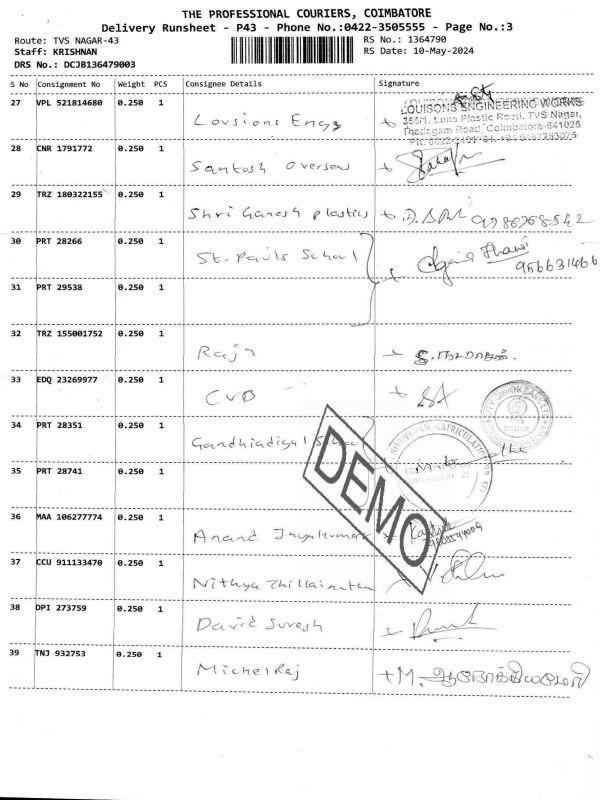 THE PROFESSIONAL COURIERS, COIMBATORE
Delivery Runsheet - P43 - Phone No.:0422-3505555 - Page No.:3
Route: TVS NAGAR-43
RS No.: 1364790
Staff: KRISHNAN
RS Date: 10-May-2024
DRS No.: DCJB136479003
S No Consignment No Weight PCS Consignee Details Signature
27 VPL 521814680 0.250 1
Lovsions Engg
LOUISONS ENGINEERING WORKS
355/1, Luna Plastic Road, TVS Nagar,
Thadagam Road, Coimbatore-641025
28 CNR 1791772 0.250 1
Santosh Overseas
29 TRZ 180322155 0.250 1
Shri Ganesh plastics
30 PRT 28266 0.250 1
St. Pauls School
956631466
31 PRT 29538 0.250 1
32 TRZ 155001752 0.250 1
Raja
33 EDQ 23269977 0.250 1
CVB
34 PRT 28351 0.250 1
Gandhiadigal
35 PRT 28741 0.250 1
DEMO
36 MAA 106277774 0.250 1
Anand Jayakumar
37 CCU 911133470 0.250 1
Nithya
38 DPI 273759 0.250 1
David Suresh
39 TNJ 932753 0.250 1
Michel Raj